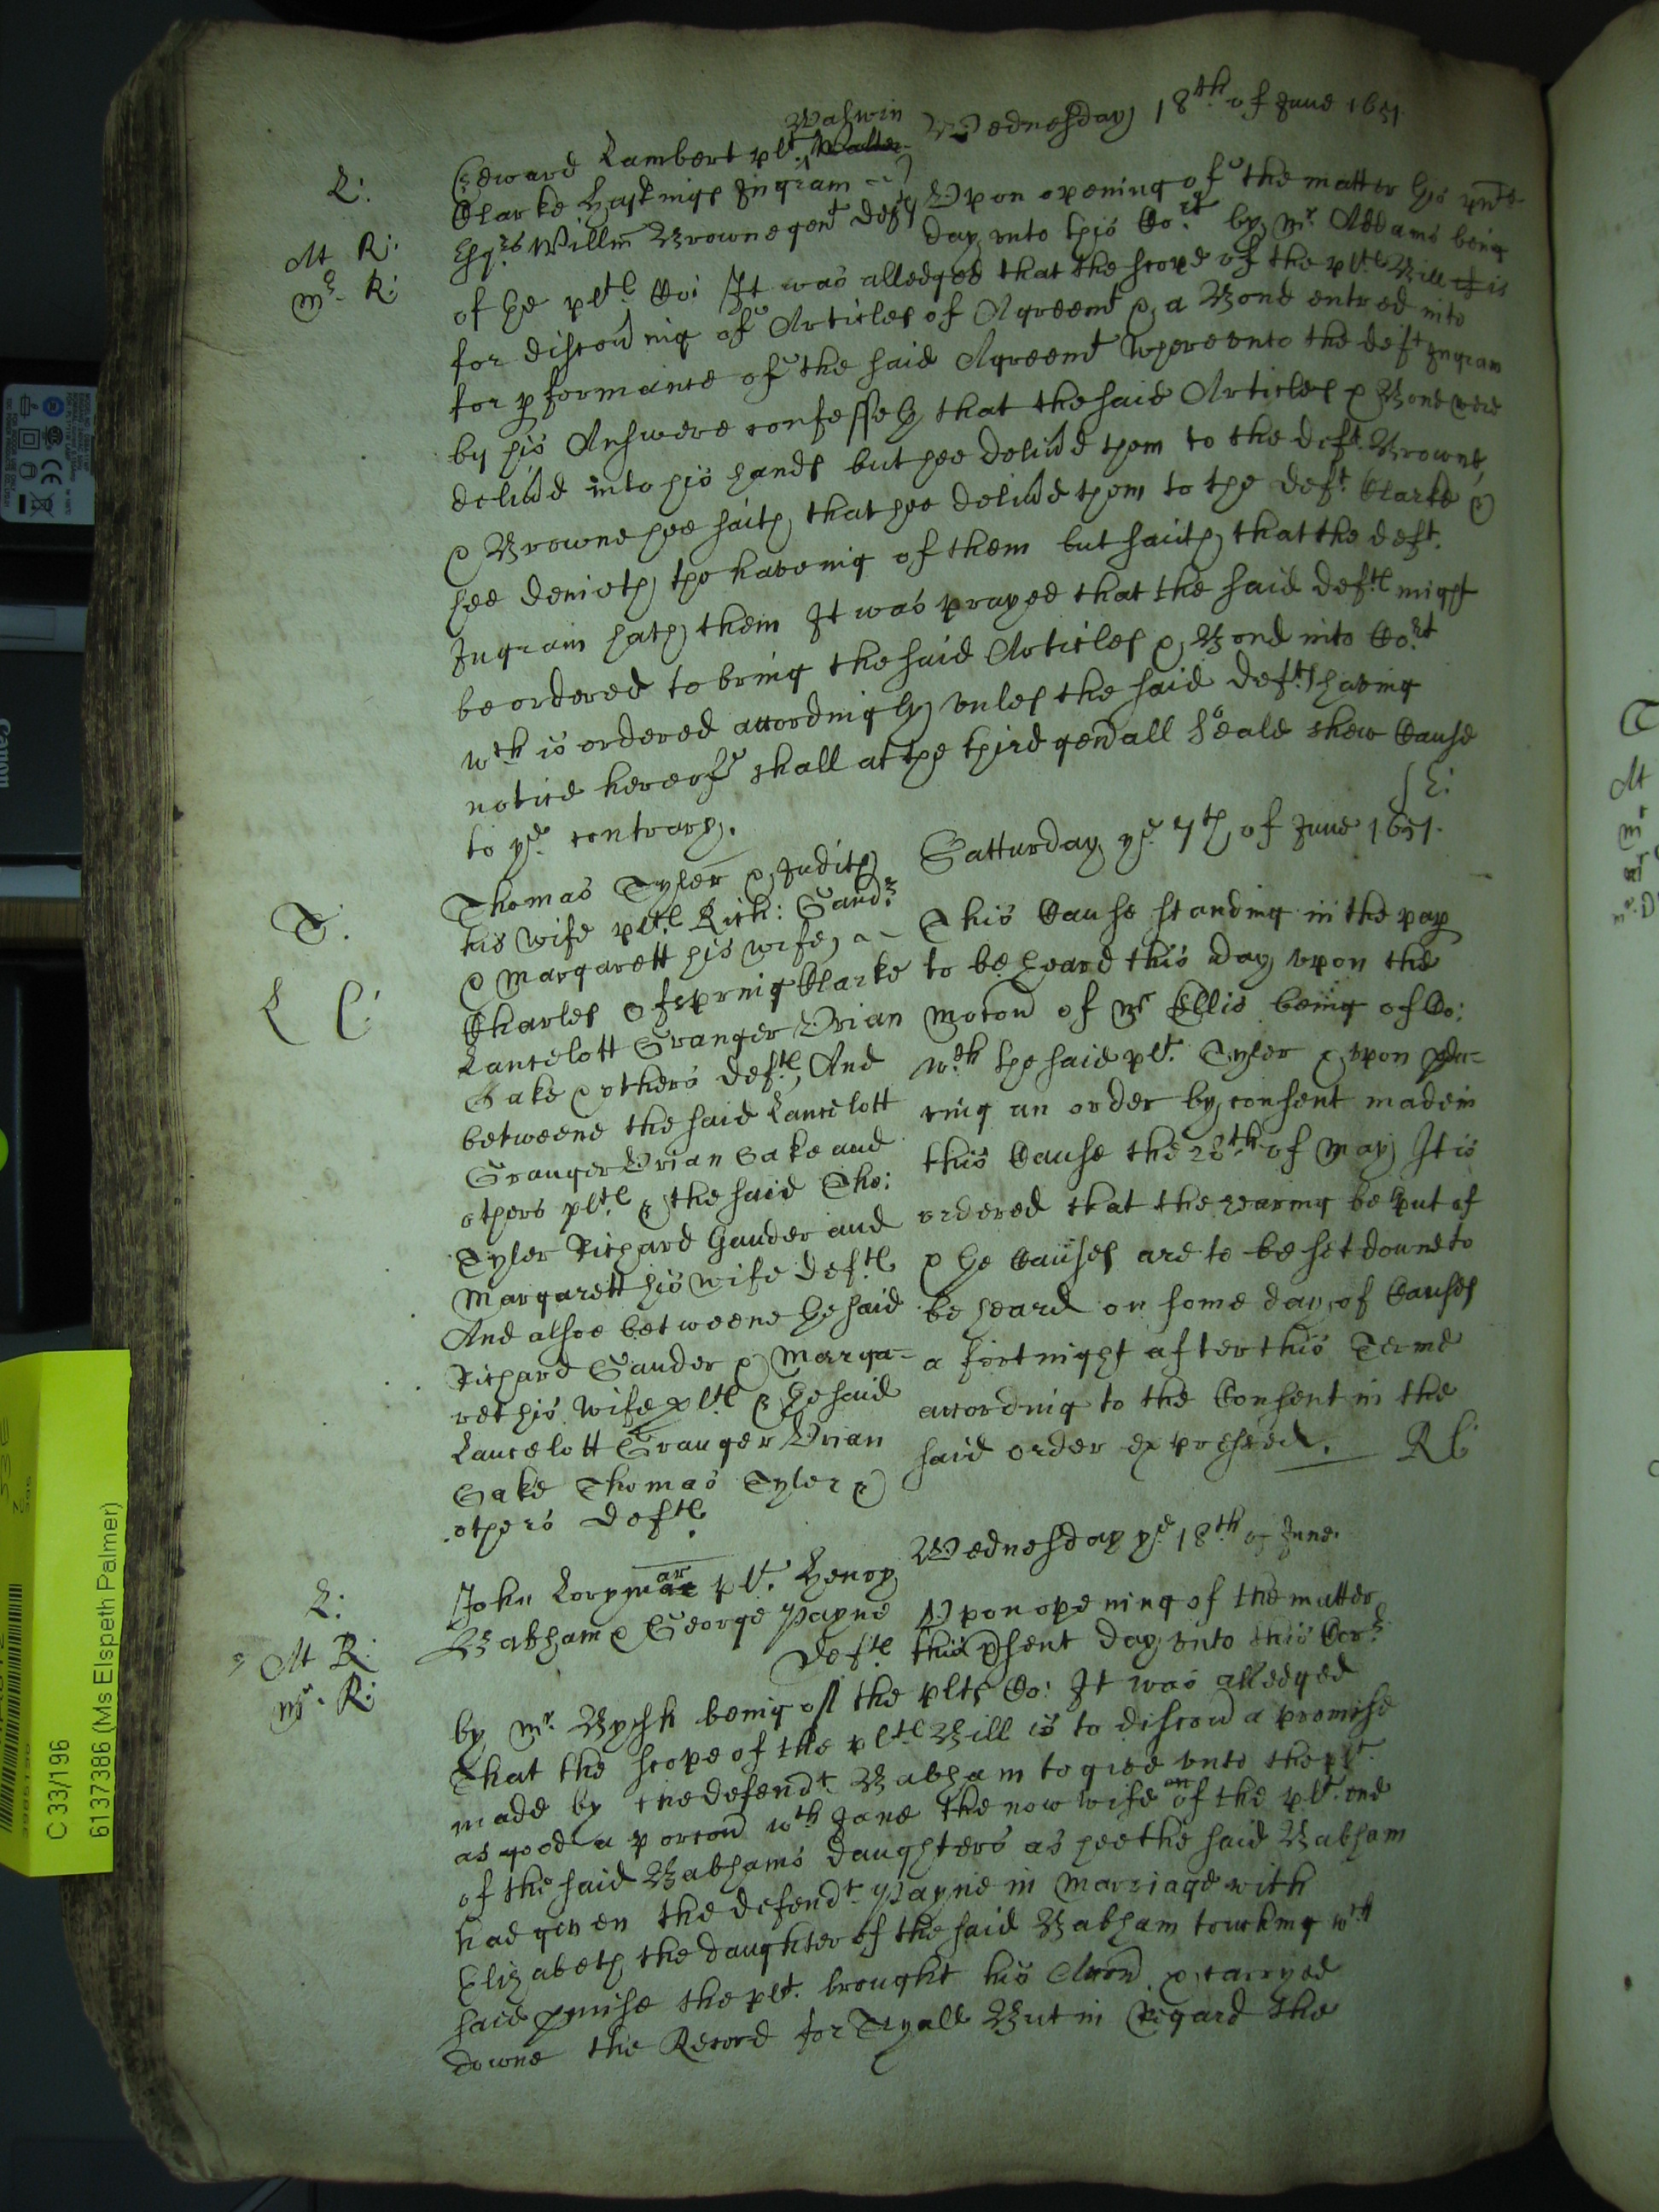 Wednesday 18th of June 1651
L:
Edward Lambert plt. Walwin
Clarke Hastings Ingram
Esqrs Willm Browne gent defts
Mt R:
Mr R:
Upon opening of the matter this pnte
day unto this Cort by Mr Addams being
of the plts Co: It was alledged that the scope of the plts Bill is
for discoving of Articles of Agreemt & a Bond entred into
for pformance of the said Agreemt whereunto the deft Ingram
by his Answere confesseth that the said Articles & Bond were
delivd into his hands but hee delivd them to the deft. Browne
& Browne hee saith that hee delivd them to the deft. Clarke &
hee denieth the haveing of them but saith that the deft.
Ingram hath them It was prayed that the said defts might
be ordered to bring the said Articles & Bond into Cort
wch is ordered accordingly unles the said defts having
notice hereof shall at the third genall Seale shew Cause
to ye contrary.
L:
Satturday ye 7th of June 1651.
T.
L C:
Thomas Tyler & Judith
his wife plts Rich: Gandr
& Margarett his wife
Charles Ofspring Clarke
Lancelott Granger Brian
Sake & others defts, And
betweene the said Lancelott
Granger Brian Sake and
others plts & the said Tho:
Tyler Richard Gander and
Margarett his wife defts
And alsoe betweene the said
Richard Gander & Marga=
ret his wife plts & the said
Lancelott Granger Brian
Sake Thomas Tyler &
others defts.
This Cause standing in the pap
to be heard this day upon the
motion of Mr Ellis being of Co:
wth the said plt. Tyler & upon pdu=
cing an order by consent made in
this Cause the 28th of May It is
ordered that the hearing be put of
& the Causes are to be set downe to
be heard on some day of Causes
a fortnight after this Terme
according to the Consent in the
said order expressed. RC
Wednesday ye 18th of June.
L:
Mt R:
Mr. R:
John Lorymar plt. Henry
Babham & George Payne
defts
Upon opening of the matter
this psent day unto this Cort
by Mr. Wysh being of the plts Co: It was alledged
That the scope of the plts Bill is to discov a promise
made by the defendt. Babham to give unto the plt.
as good a porcon wth Jane the now wife of the plt. one
of the said Babhams daughters as hee the said Babham
had given the defendt. Payne in marriage with
Elizabeth the daughter of the said Babham touching wch
said pmise the plt. brought his Accon & carryed
downe the Record for Tryall But in Regard the
C 33/196
6137386 (Ms Elspeth Palmer)
Canon